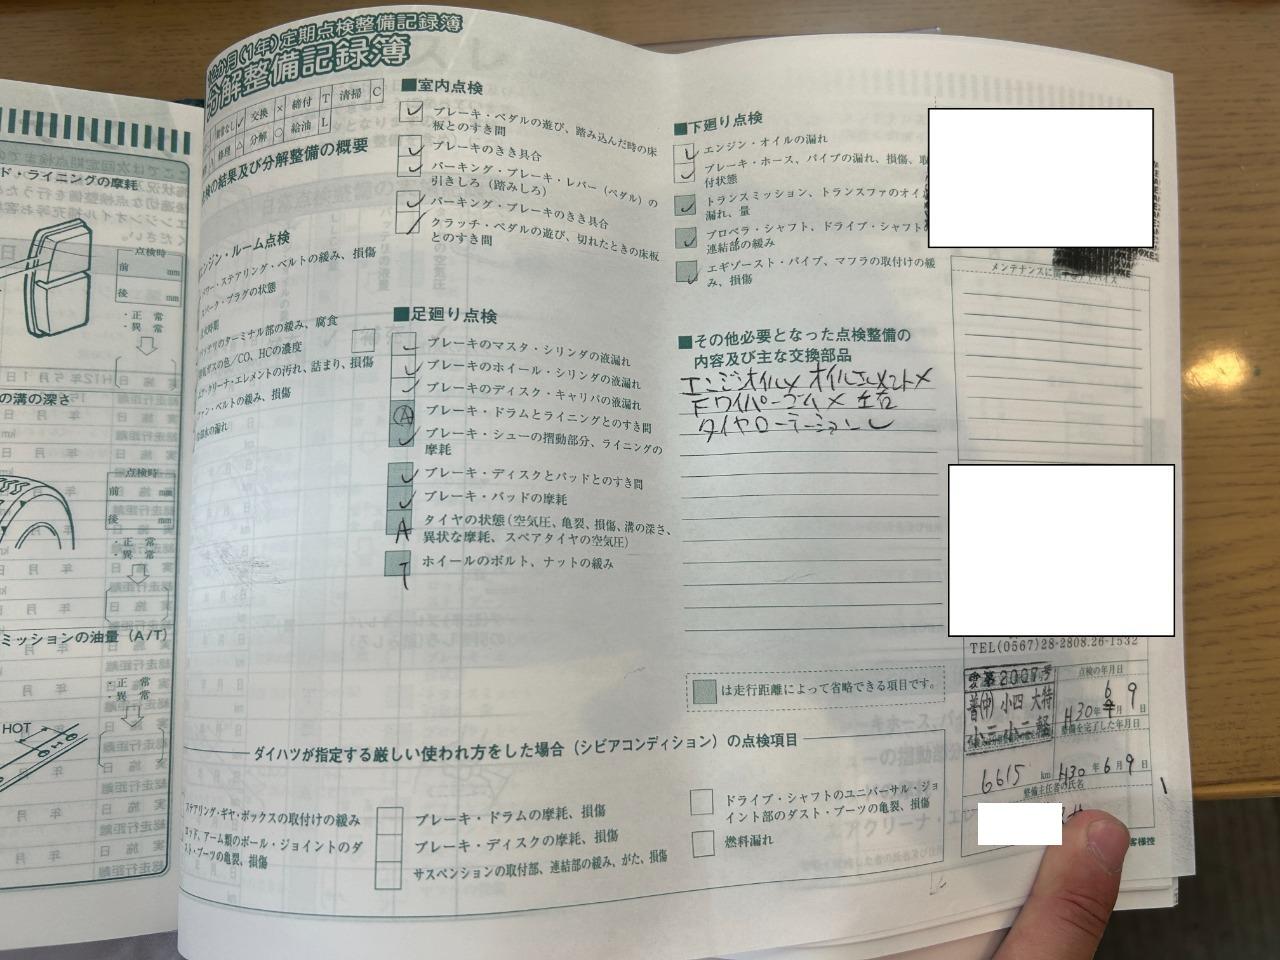 定期点検整備記録簿
分解整備記録簿
交換 × 締付 T 清掃 C
修理 △ 分解 ○ 給油 L
点検の結果及び分解整備の概要
エンジン・ルーム点検
パワー・ステアリング・ベルトの緩み、損傷
スパーク・プラグの状態
点火時期
バッテリのターミナル部の緩み、腐食
排気ガスの色/CO、HCの濃度
エア・クリーナ・エレメントの汚れ、詰まり、損傷
ファン・ベルトの緩み、損傷
冷却水の漏れ
■室内点検
ブレーキ・ペダルの遊び、踏み込んだ時の床
板とのすき間
ブレーキのきき具合
パーキング・ブレーキ・レバー(ペダル)の
引きしろ(踏みしろ)
パーキング・ブレーキのきき具合
クラッチ・ペダルの遊び、切れたときの床板
とのすき間
■足廻り点検
ブレーキのマスタ・シリンダの液漏れ
ブレーキのホイール・シリンダの液漏れ
ブレーキのディスク・キャリパの液漏れ
Ⓐ ブレーキ・ドラムとライニングとのすき間
ブレーキ・シューの摺動部分、ライニングの
摩耗
ブレーキ・ディスクとパッドとのすき間
ブレーキ・パッドの摩耗
A タイヤの状態(空気圧、亀裂、損傷、溝の深さ、
異状な摩耗、スペアタイヤの空気圧)
T ホイールのボルト、ナットの緩み
■下廻り点検
エンジン・オイルの漏れ
ブレーキ・ホース、パイプの漏れ、損傷、取
付状態
トランスミッション、トランスファのオイル
漏れ、量
プロペラ・シャフト、ドライブ・シャフト
連結部の緩み
エギゾースト・パイプ、マフラの取付けの緩
み、損傷
■その他必要となった点検整備の
内容及び主な交換部品
エンジンオイル× オイルエレメント×
Fワイパーゴム× 左右
タイヤローテーション✓
は走行距離によって省略できる項目です。
TEL(0567)28-2808.26-1532
点検の年月日
普(中) 小四 大特
小三 小二 軽
H30年6月9日
整備を完了した年月日
6615 km H30年6月9日
整備主任者の氏名
ダイハツが指定する厳しい使われ方をした場合(シビアコンディション)の点検項目
ステアリング・ギヤ・ボックスの取付けの緩み
ロッド、アーム類のボール・ジョイントのダ
スト・ブーツの亀裂、損傷
ブレーキ・ドラムの摩耗、損傷
ブレーキ・ディスクの摩耗、損傷
サスペンションの取付部、連結部の緩み、がた、損傷
ドライブ・シャフトのユニバーサル・ジョ
イント部のダスト・ブーツの亀裂、損傷
燃料漏れ
ド・ライニングの摩耗
点検時
前 mm
後 mm
・正 常
・異 常
の溝の深さ
点検時
前 mm
後 mm
・正 常
・異 常
ミッションの油量(A/T)
・正 常
・異 常
HOT